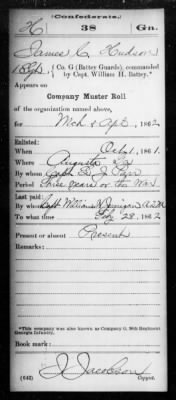 (Confederate.)
H 38 Ga.
James C. Hudson
Co. G (Battey Guards), commanded by Capt. William H. Battey.*
Appears on
Company Muster Roll
of the organization named above,
for Mch & Apl, 1862.
Enlisted:
When Oct 1, 1861.
Where Augusta Ga
By whom Capt
Period three years or the war
Last paid:
By whom Capt William A.Q.M.
To what time Feby 28, 1862
Present or absent Present
Remarks:
*This company was also known as Company G, 38th Regiment
Georgia Infantry.
J. Jacobson
(642) Copyist.